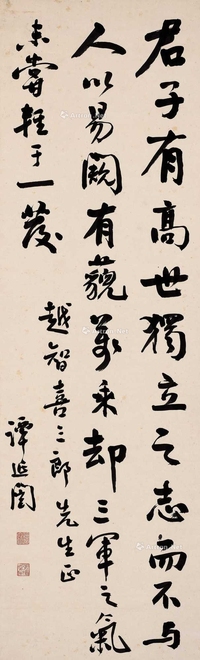 君子有高世獨立之志而不与
人以易闚有藐萬乘却三軍之氣
未嘗輕于一發
越智喜三郎先生正
譚延闓